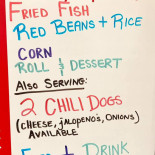 FRIED FISH
RED BEANS + RICE
CORN
ROLL & DESSERT
ALSO SERVING:
2 CHILI DOGS
(CHEESE, JALOPENO'S, ONIONS)
AVAILABLE
+ DRINK